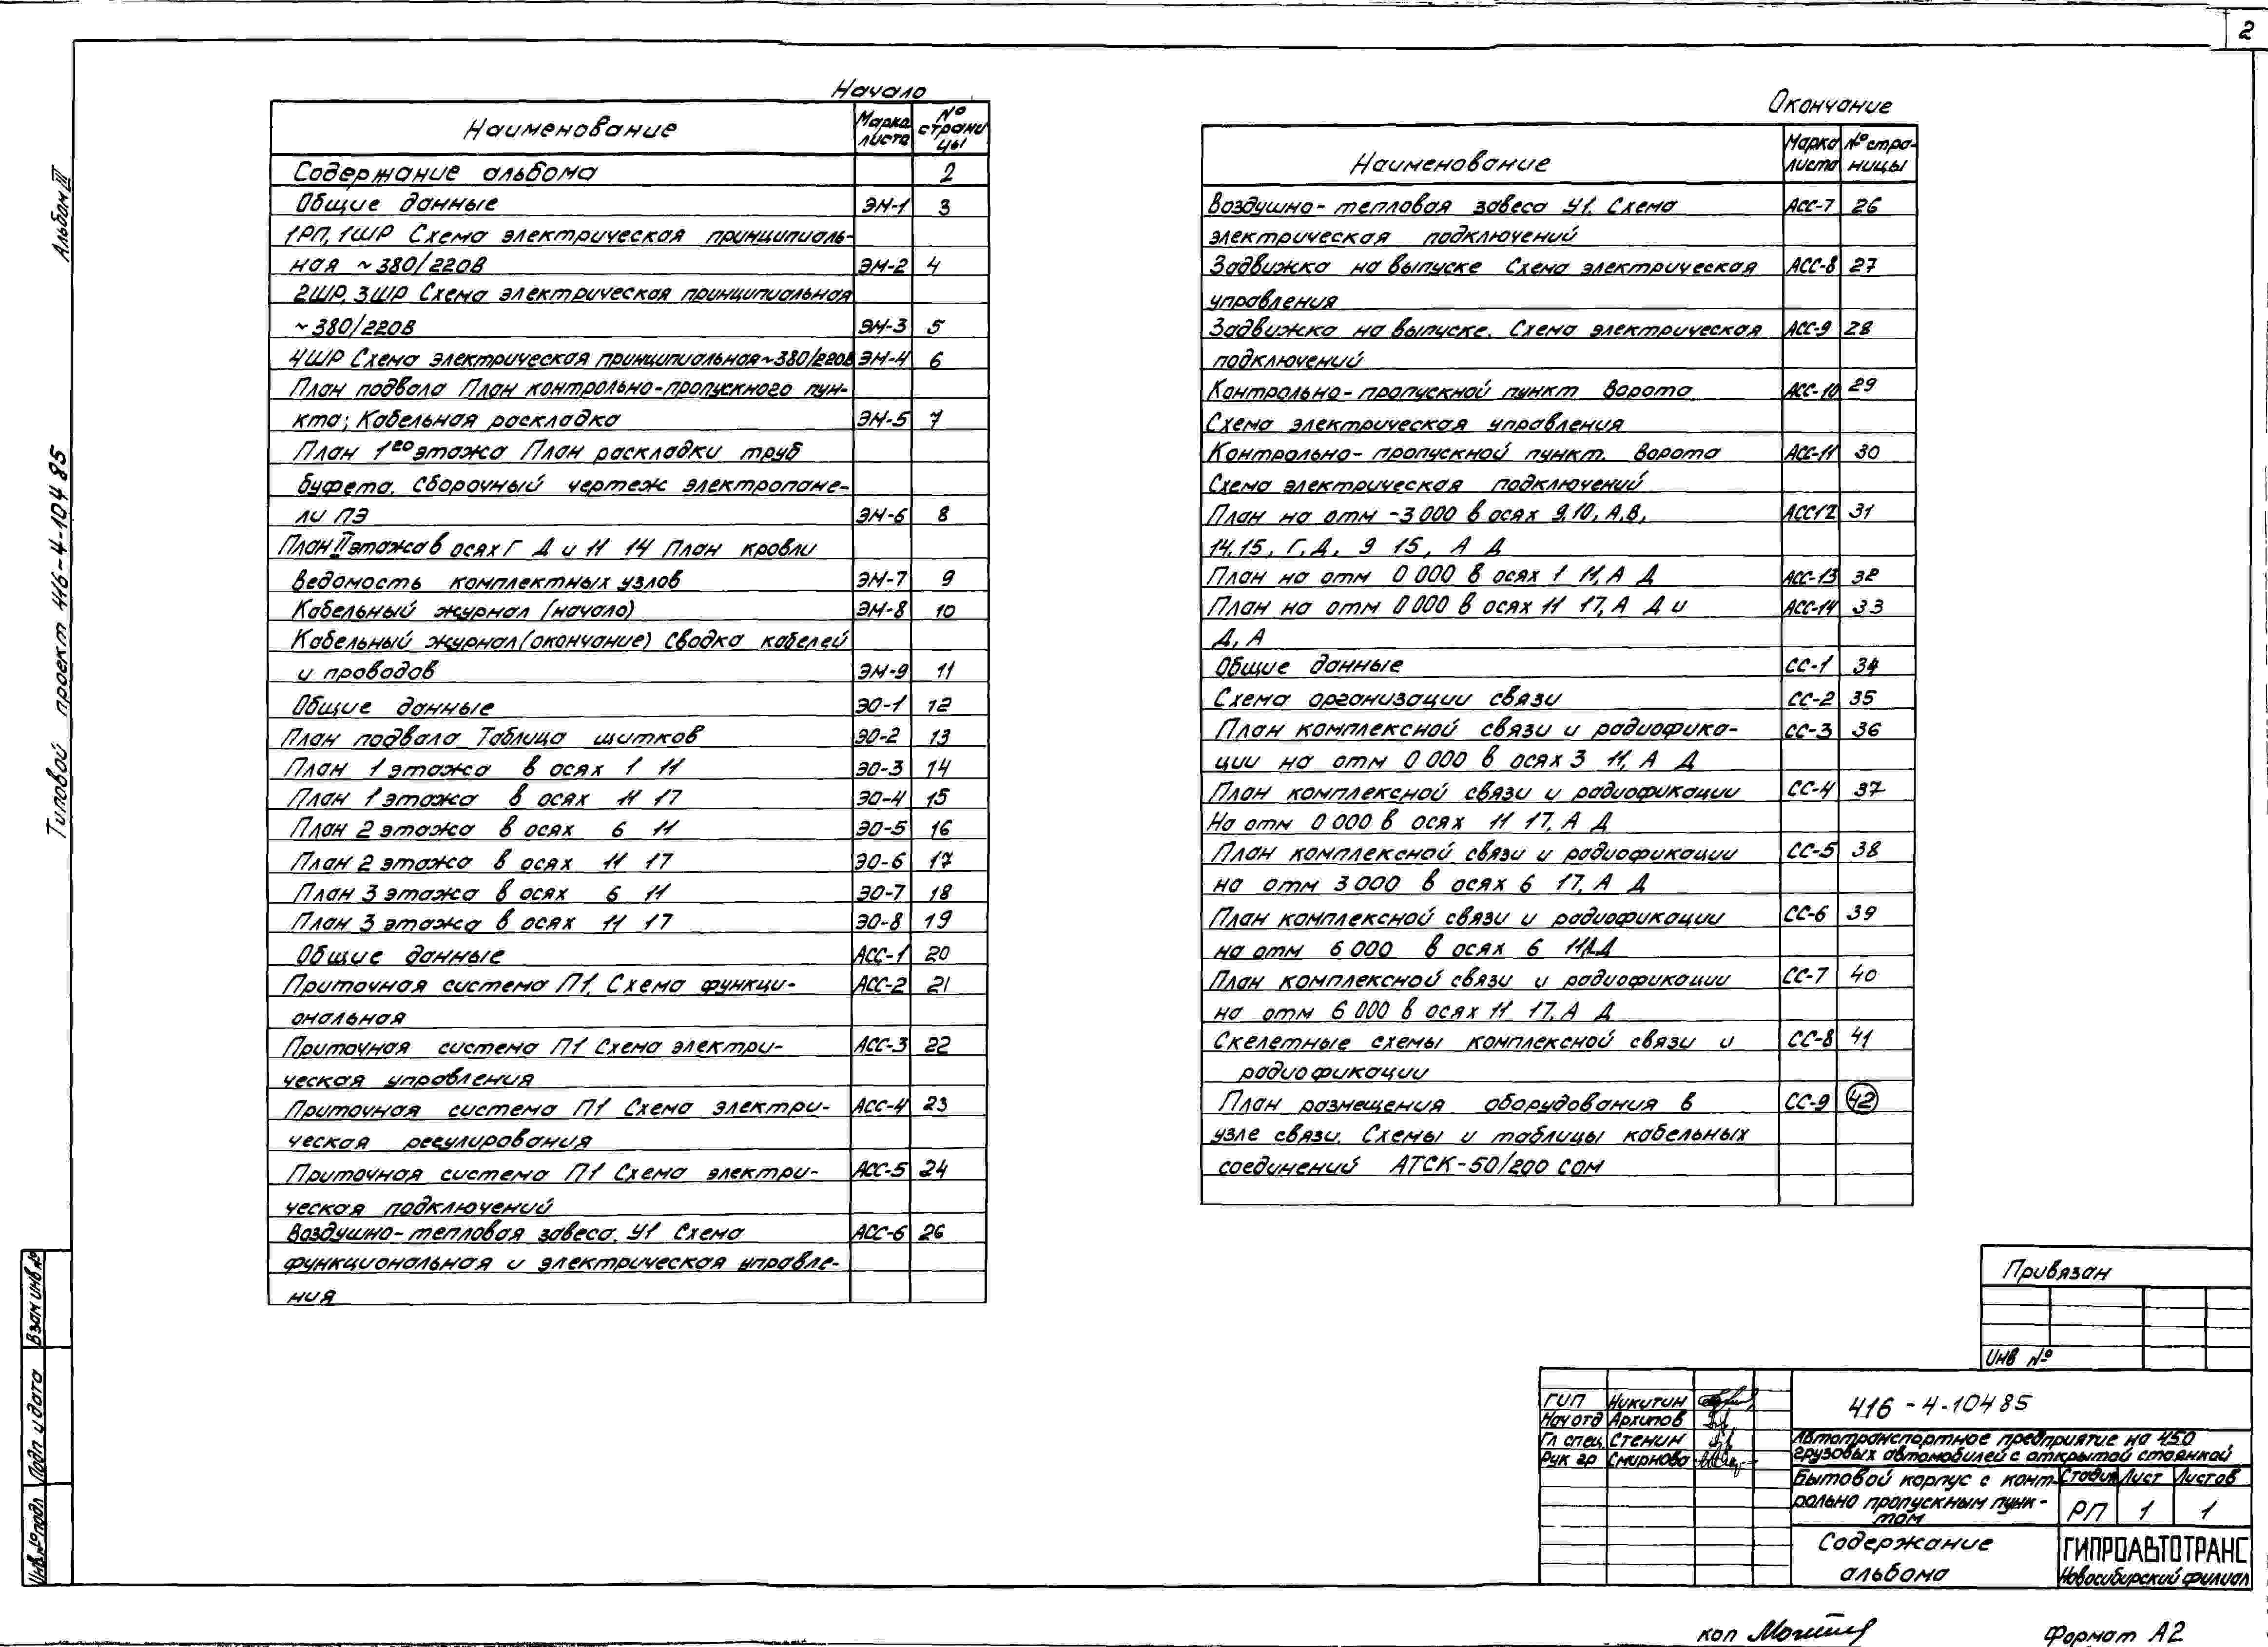 2
Альбом III
Типовой проект 416-4-104 85
Начало
Наименование Марка листа № страницы
Содержание альбома 2
Общие данные ЭМ-1 3
1РП, 1ШР Схема электрическая принципиаль-
ная ~380/220В ЭМ-2 4
2ШР, 3ШР Схема электрическая принципиальная
~380/220В ЭМ-3 5
4ШР Схема электрическая принципиальная ~380/220В ЭМ-4 6
План подвала План контрольно-пропускного пун-
кта; Кабельная раскладка ЭМ-5 7
План 1го этажа План раскладки труб
буфета. Сборочный чертеж электропане-
ли ПЭ ЭМ-6 8
План II этажа в осях Г Д и 11 14 План кровли
Ведомость комплектных узлов ЭМ-7 9
Кабельный журнал (начало) ЭМ-8 10
Кабельный журнал (окончание) Сводка кабелей
и проводов ЭМ-9 11
Общие данные ЭО-1 12
План подвала Таблица щитков ЭО-2 13
План 1 этажа в осях 1 11 ЭО-3 14
План 1 этажа в осях 11 17 ЭО-4 15
План 2 этажа в осях 6 11 ЭО-5 16
План 2 этажа в осях 11 17 ЭО-6 17
План 3 этажа в осях 6 11 ЭО-7 18
План 3 этажа в осях 11 17 ЭО-8 19
Общие данные АСС-1 20
Приточная система П1. Схема функци-
ональная АСС-2 21
Приточная система П1 Схема электри-
ческая управления АСС-3 22
Приточная система П1 Схема электри-
ческая регулирования АСС-4 23
Приточная система П1 Схема электри-
ческая подключений АСС-5 24
Воздушно-тепловая завеса. У1 Схема АСС-6 26
функциональная и электрическая управле-
ния
Окончание
Наименование Марка листа № страницы
Воздушно-тепловая завеса У1. Схема АСС-7 26
электрическая подключений
Задвижка на выпуске Схема электрическая АСС-8 27
управления
Задвижка на выпуске. Схема электрическая АСС-9 28
подключений
Контрольно-пропускной пункт Ворота АСС-10 29
Схема электрическая управления
Контрольно-пропускной пункт. Ворота АСС-11 30
Схема электрическая подключений
План на отм -3 000 в осях 9,10, А,В, АСС12 31
14,15, Г,Д, 9 15, А Д
План на отм 0 000 в осях 1 11, А Д АСС-13 32
План на отм 0 000 в осях 11 17, А Д и АСС-14 33
Д, А
Общие данные СС-1 34
Схема организации связи СС-2 35
План комплексной связи и радиофика- СС-3 36
ции на отм 0 000 в осях 3 11, А Д
План комплексной связи и радиофикации СС-4 37
На отм 0 000 в осях 11 17, А Д
План комплексной связи и радиофикации СС-5 38
на отм 3 000 в осях 6 17, А Д
План комплексной связи и радиофикации СС-6 39
на отм 6 000 в осях 6 11,А Д
План комплексной связи и радиофикации СС-7 40
на отм 6 000 в осях 11 17, А Д
Скелетные схемы комплексной связи и СС-8 41
радиофикации
План размещения оборудования в СС-9 42
узле связи. Схемы и таблицы кабельных
соединений АТСК-50/200 СОМ
Привязан
Инв №
ГИП Никитин
Нач отд Архипов
Гл спец. Стенин
Рук гр Смирнова
416-4-104 85
Автотранспортное предприятие на 450
грузовых автомобилей с открытой стоянкой
Бытовой корпус с конт-
рольно пропускным пунк-
том
Стадия Лист Листов
РП 1 1
Содержание
альбома
ГИПРОАВТОТРАНС
Новосибирский филиал
Взам инв №
Подп и дата
Инв. № подл
коп
Формат А2